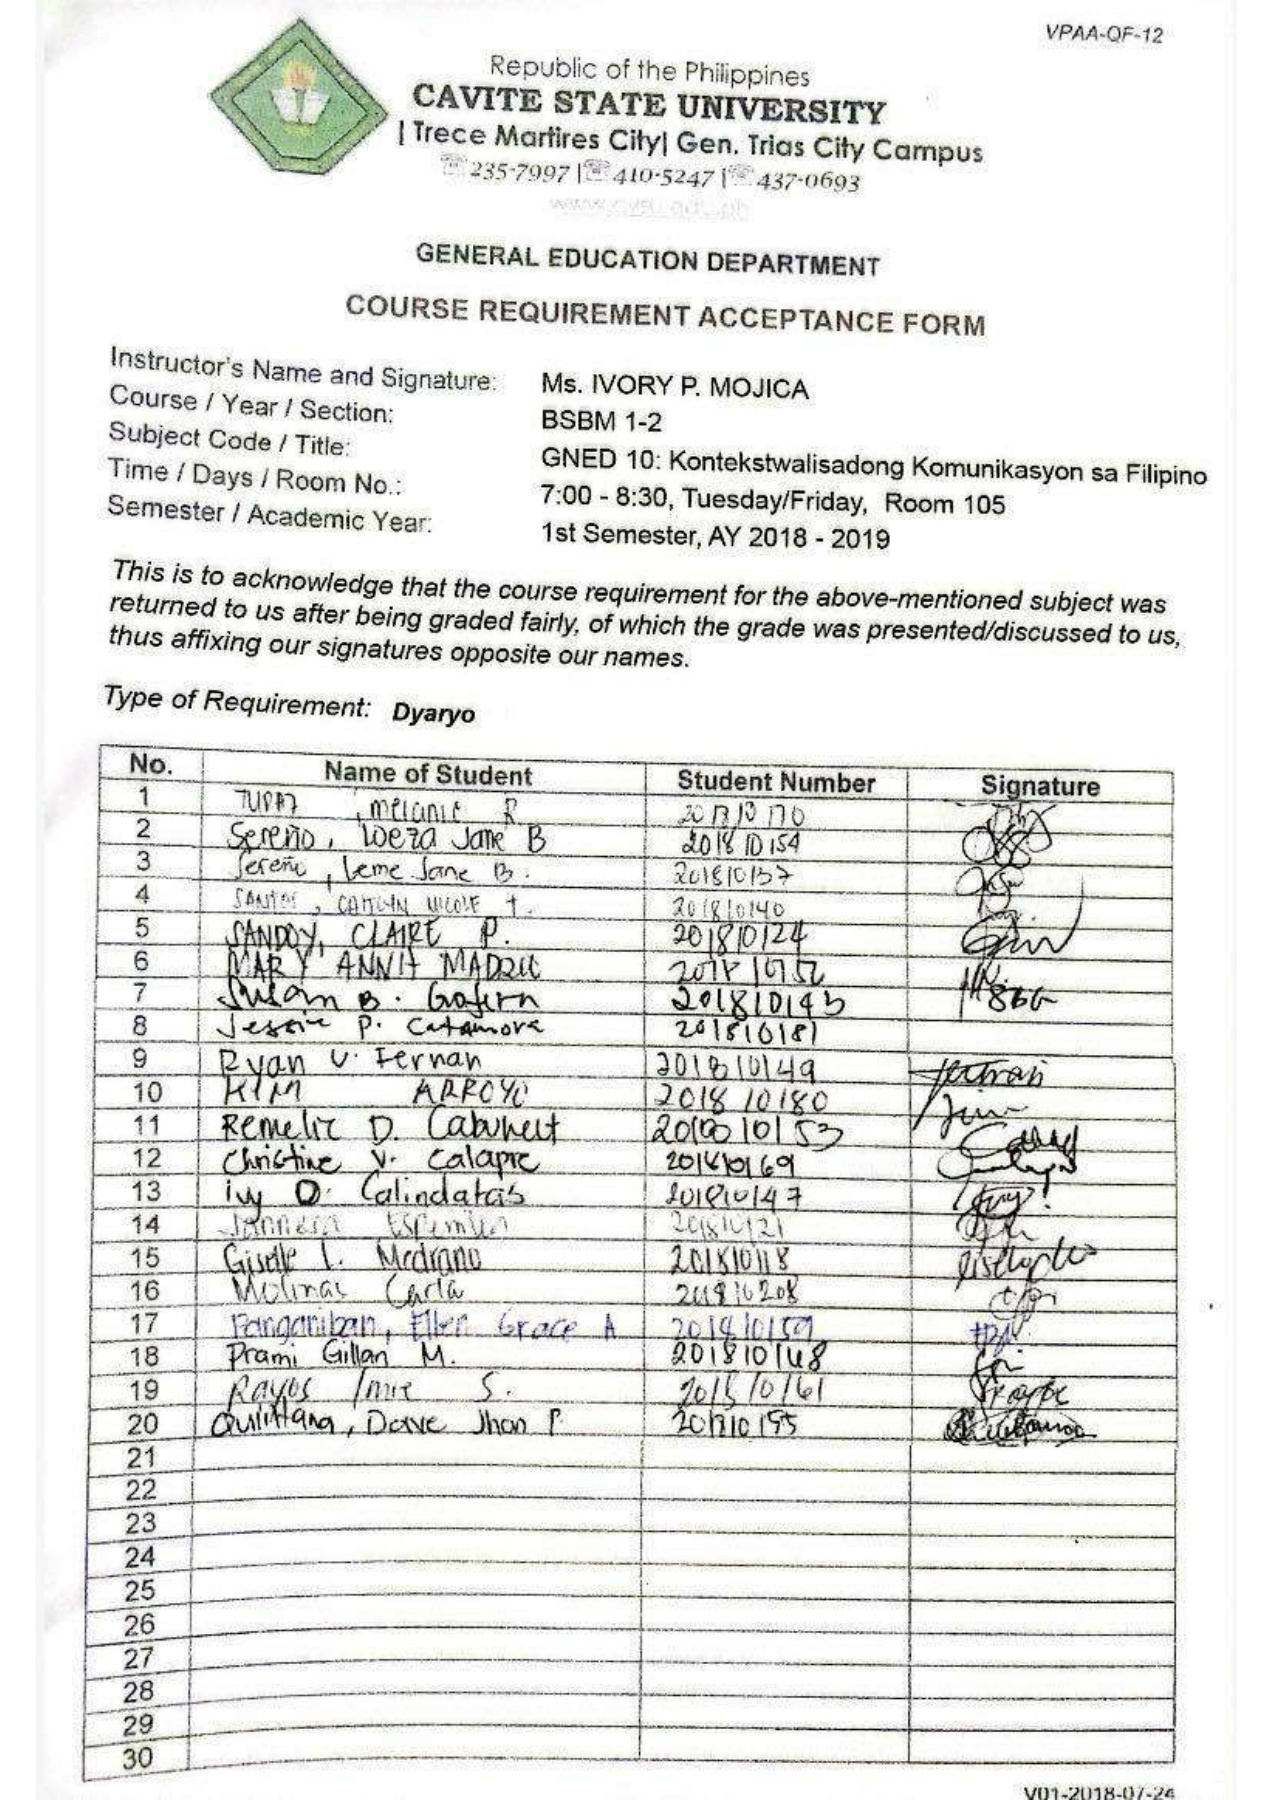 VPAA-QF-12
Republic of the Philippines
CAVITE STATE UNIVERSITY
| Trece Martires City| Gen. Trias City Campus
☏235-7997 |☏410-5247 |☏437-0693
GENERAL EDUCATION DEPARTMENT
COURSE REQUIREMENT ACCEPTANCE FORM
Instructor's Name and Signature: Ms. IVORY P. MOJICA
Course / Year / Section: BSBM 1-2
Subject Code / Title: GNED 10: Kontekstwalisadong Komunikasyon sa Filipino
Time / Days / Room No.: 7:00 - 8:30, Tuesday/Friday, Room 105
Semester / Academic Year: 1st Semester, AY 2018 - 2019
This is to acknowledge that the course requirement for the above-mentioned subject was
returned to us after being graded fairly, of which the grade was presented/discussed to us,
thus affixing our signatures opposite our names.
Type of Requirement: Dyaryo
No. Name of Student Student Number Signature
1 TUPAZ, Melanie R
2 Sereño, Loeza Jane B 201810154
3 Sereño, Leme Jane B. 201810137
4 SANTOS, CAITLYN NICOLE T. 201810140
5 SANDOY, CLAIRE P. 201810124
6 MARY
7 Susan B. 201810143 SBG
8 Jessie P. 201810181
9 Ryan V. Fernan 201810149
10 KIM ARROYO 201810180
11 D. 
12 Christine V. Calapre 201810169
13 ivy O. Calindatas 201810147
14 201810121
15 Giselle L. Medrano 201810118
16 Molinas Carla 201810208
17 Panganiban, Ellen Grace A 201810159
18 Prami Gillan M. 201810148
19 Rayos S. 201810161
20 Quilittana, Dave Jhon P.
21
22
23
24
25
26
27
28
29
30
V01-2018-07-24